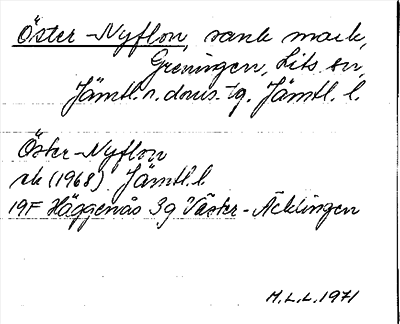 Öster-Nyflon, sank mark,
Greningen, Lits sn,
Jämtl. n. doms. tg. Jämtl. l.
Öster-Nyflon
ek (1968) Jämtl. l
19F Häggenås 3g Väster-Äcklingen
M.L.L. 1971